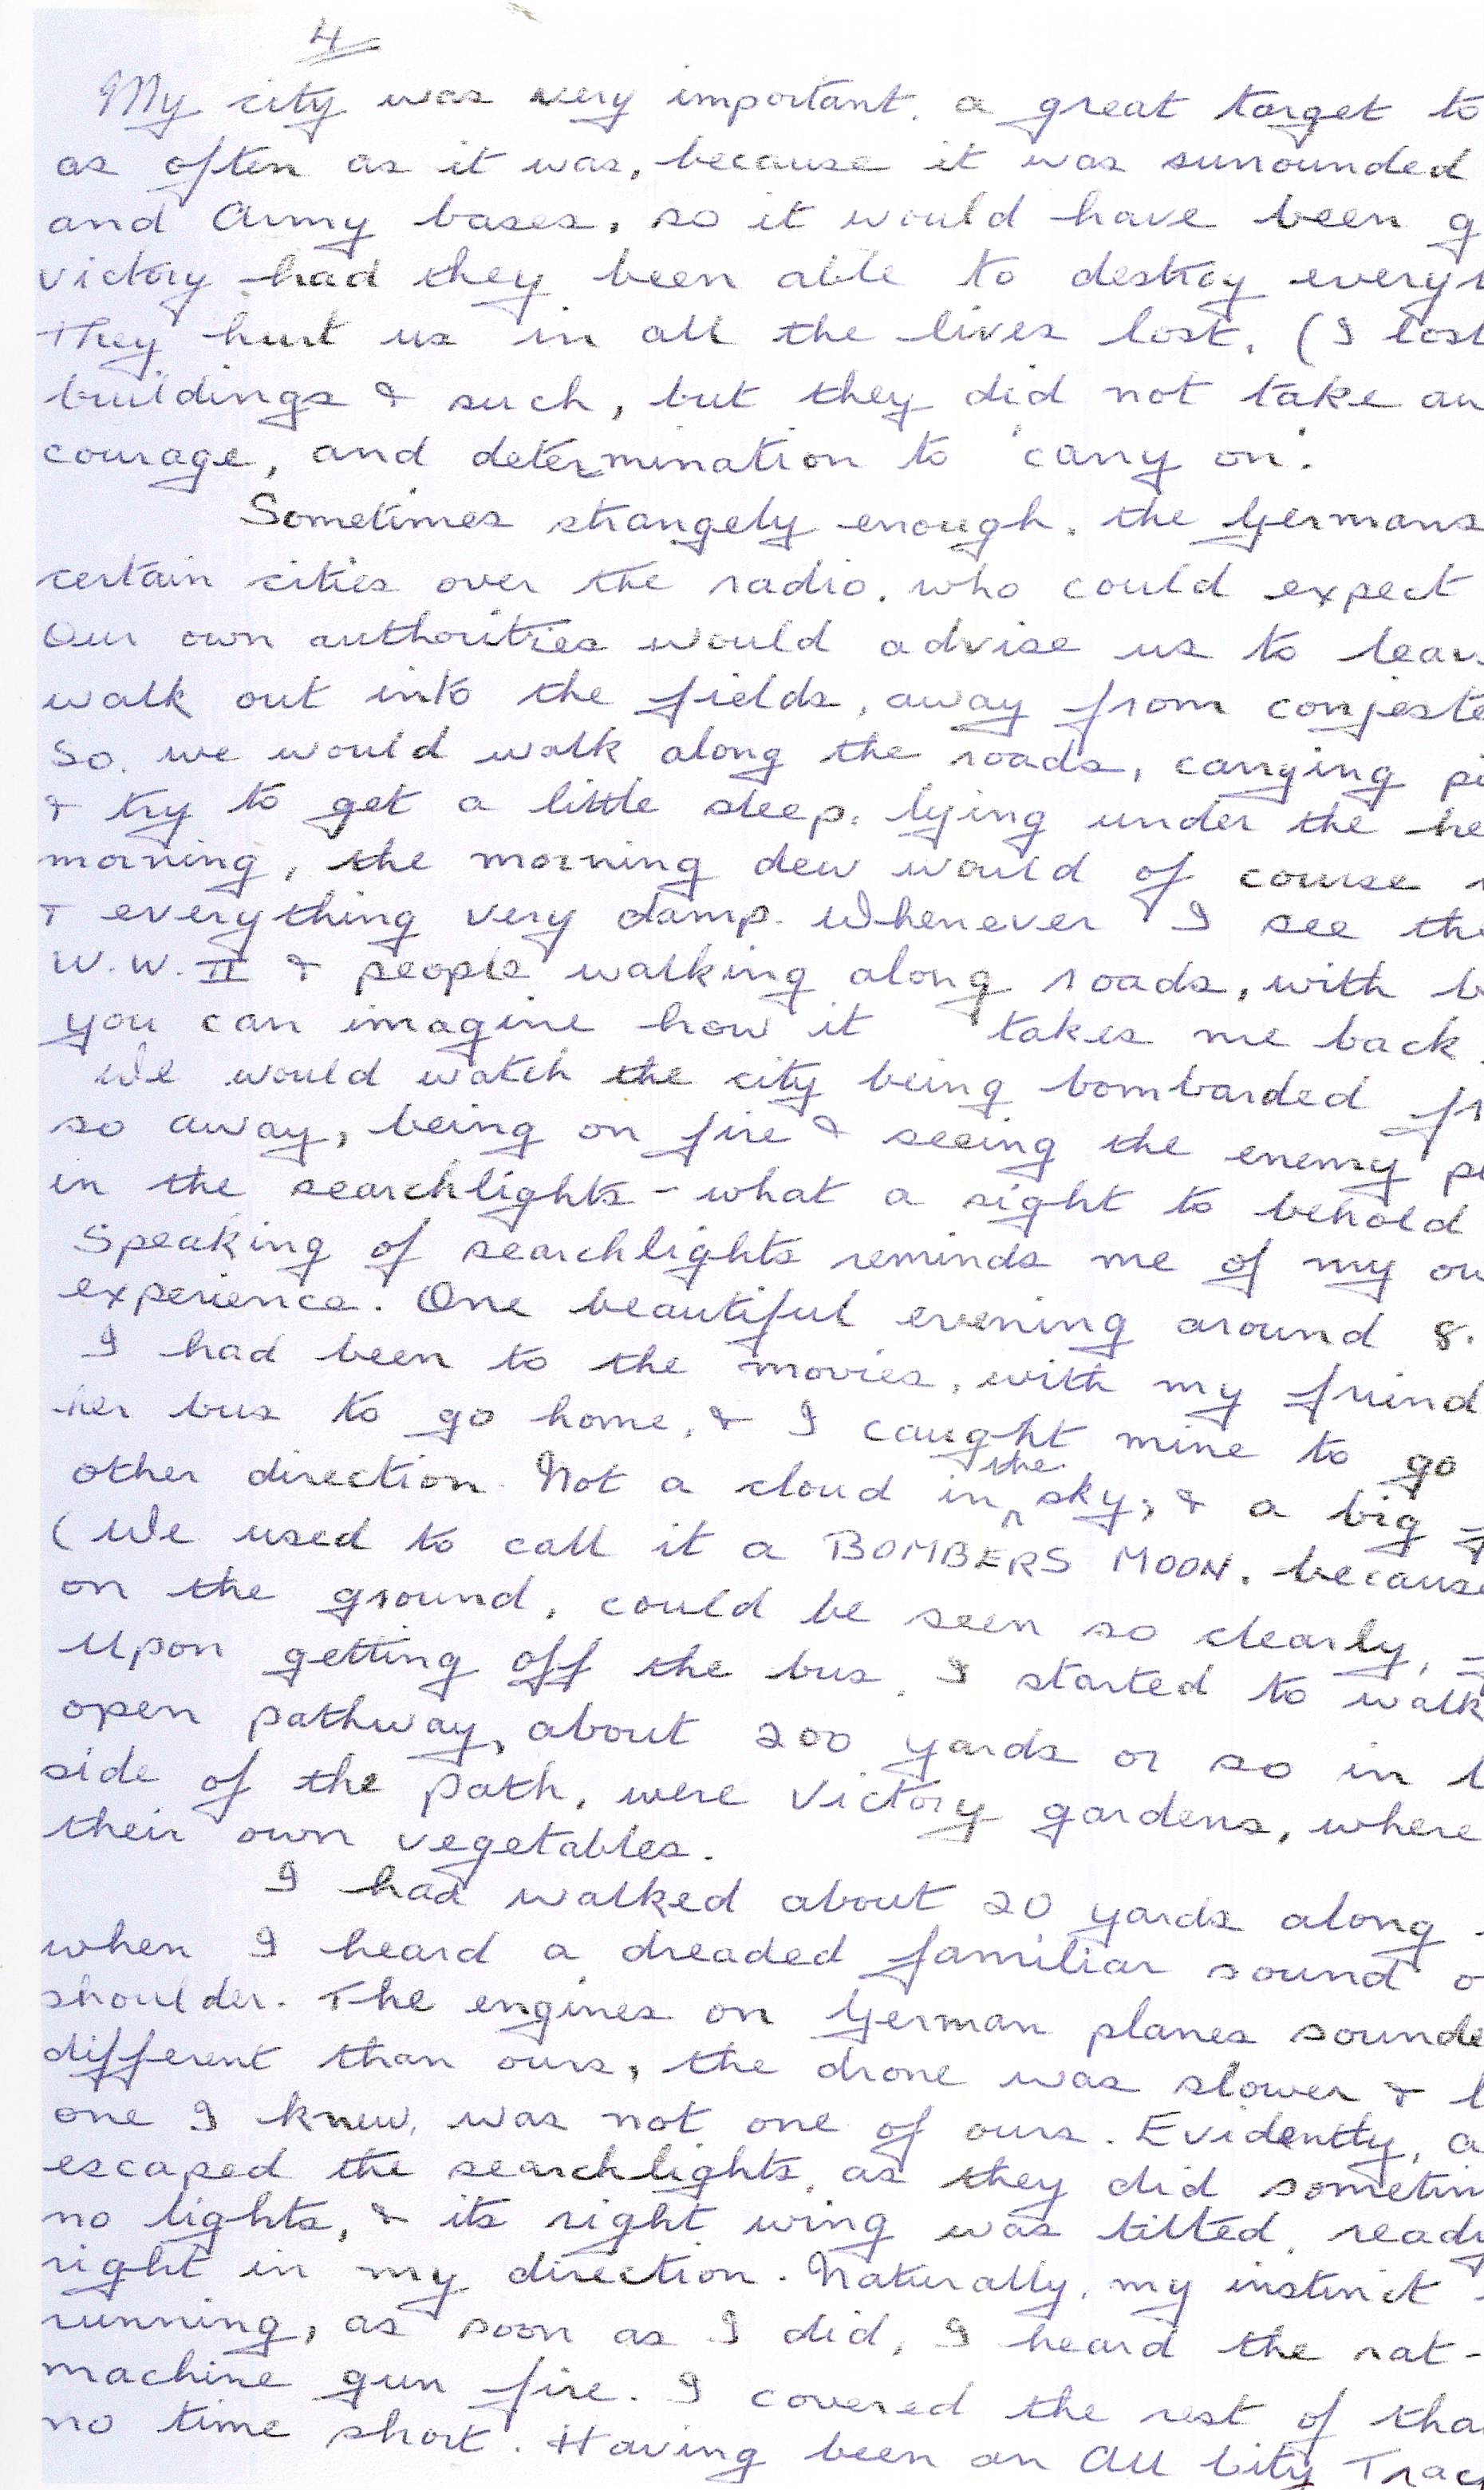 4
My city was very important, a great target to
as often as it was, because it was surrounded
and Army bases, so it would have been g
victory had they been able to destroy every
They hurt us in all the lives lost, (I lost
buildings & such, but they did not take aw
courage, and determination to 'carry on'.
Sometimes strangely enough, the Germans
certain cities over the radio, who could expect
Our own authorities would advise us to leav
walk out into the fields, away from conjeste
So, we would walk along the roads, carrying pi
& try to get a little sleep, lying under the he
morning, the morning dew would of course
& everything very damp. Whenever I see the
W.W.II & people walking along roads, with b
you can imagine how it takes me back
We would watch the city being bombarded fr
so away, being on fire & seeing the enemy pl
in the searchlights - what a sight to behold
Speaking of searchlights reminds me of my ow
experience. One beautiful evening around 8.
I had been to the movies, with my friend
her bus to go home, & I caught mine to go
other direction. Not a cloud in the sky, & a big f
(We used to call it a BOMBERS MOON, because
on the ground, could be seen so clearly,
Upon getting off the bus, I started to walk
open pathway, about 200 yards or so in l
side of the path, were Victory gardens, where
their own vegetables.
I had walked about 20 yards along
when I heard a dreaded familiar sound o
shoulder. The engines on German planes sounde
different than ours, the drone was slower & l
one I knew, was not one of ours. Evidently, a
escaped the searchlights, as they did sometim
no lights, & its right wing was tilted, ready
right in my direction. Naturally, my instinct
running, as soon as I did, I heard the rat-
machine gun fire. I covered the rest of tha
no time short. Having been an All City Trac